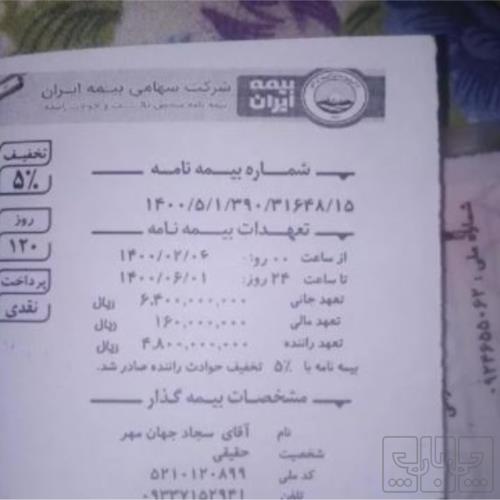 شرکت سهامی بیمه ایران
بیمه ایران
بیمه نامه شخص ثالث و حوادث راننده
تخفیف
۵%
روز
۱۲۰
پرداخت
نقدی
شماره بیمه نامه
۱۴۰۰/۵/۱/۳۹۰/۳۱۶۴۸/۱۵
تعهدات بیمه نامه
از ساعت ۰۰ روز: ۱۴۰۰/۰۲/۰۶
تا ساعت ۲۴ روز: ۱۴۰۰/۰۶/۰۱
تعهد جانی ۶,۴۰۰,۰۰۰,۰۰۰ ریال
تعهد مالی ۱۶۰,۰۰۰,۰۰۰ ریال
تعهد راننده ۴,۸۰۰,۰۰۰,۰۰۰ ریال
بیمه نامه با ۵% تخفیف حوادث راننده صادر شد.
مشخصات بیمه گذار
نام آقای سجاد جهان مهر
شخصیت حقیقی
کد ملی ۵۲۱۰۱۲۰۸۹۹
تلفن ۰۹۳۳۷۱۵۲۹۴۱
شماره ملی: ۰۹۲۴۶۵۵۰۶۲
چاپ باب